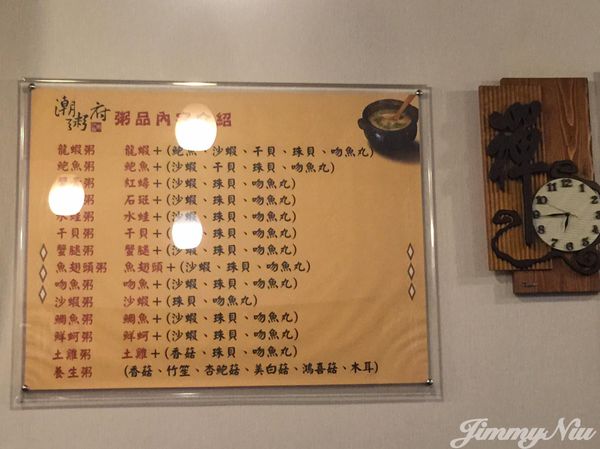 潮粥府 粥品內容介紹
龍蝦粥 龍蝦+(鮑魚、沙蝦、干貝、珠貝、吻魚丸)
鮑魚粥 鮑魚+(沙蝦、干貝、珠貝、吻魚丸)
粥 紅蟳+(沙蝦、珠貝、吻魚丸)
粥 石斑+(沙蝦、珠貝、吻魚丸)
水蛙粥 水蛙+(沙蝦、珠貝、吻魚丸)
干貝粥 干貝+(沙蝦、珠貝、吻魚丸)
蟹腿粥 蟹腿+(沙蝦、珠貝、吻魚丸)
魚翅頭粥 魚翅頭+(沙蝦、珠貝、吻魚丸)
吻魚粥 吻魚+(沙蝦、珠貝、吻魚丸)
沙蝦粥 沙蝦+(珠貝、吻魚丸)
鯛魚粥 鯛魚+(沙蝦、珠貝、吻魚丸)
鮮蚵粥 鮮蚵+(沙蝦、珠貝、吻魚丸)
土雞粥 土雞+(香菇、珠貝、吻魚丸)
養生粥 (香菇、竹笙、杏鮑菇、美白菇、鴻喜菇、木耳)
禪
12
1
2
3
4
5
6
7
8
9
10
11
JimmyNiu